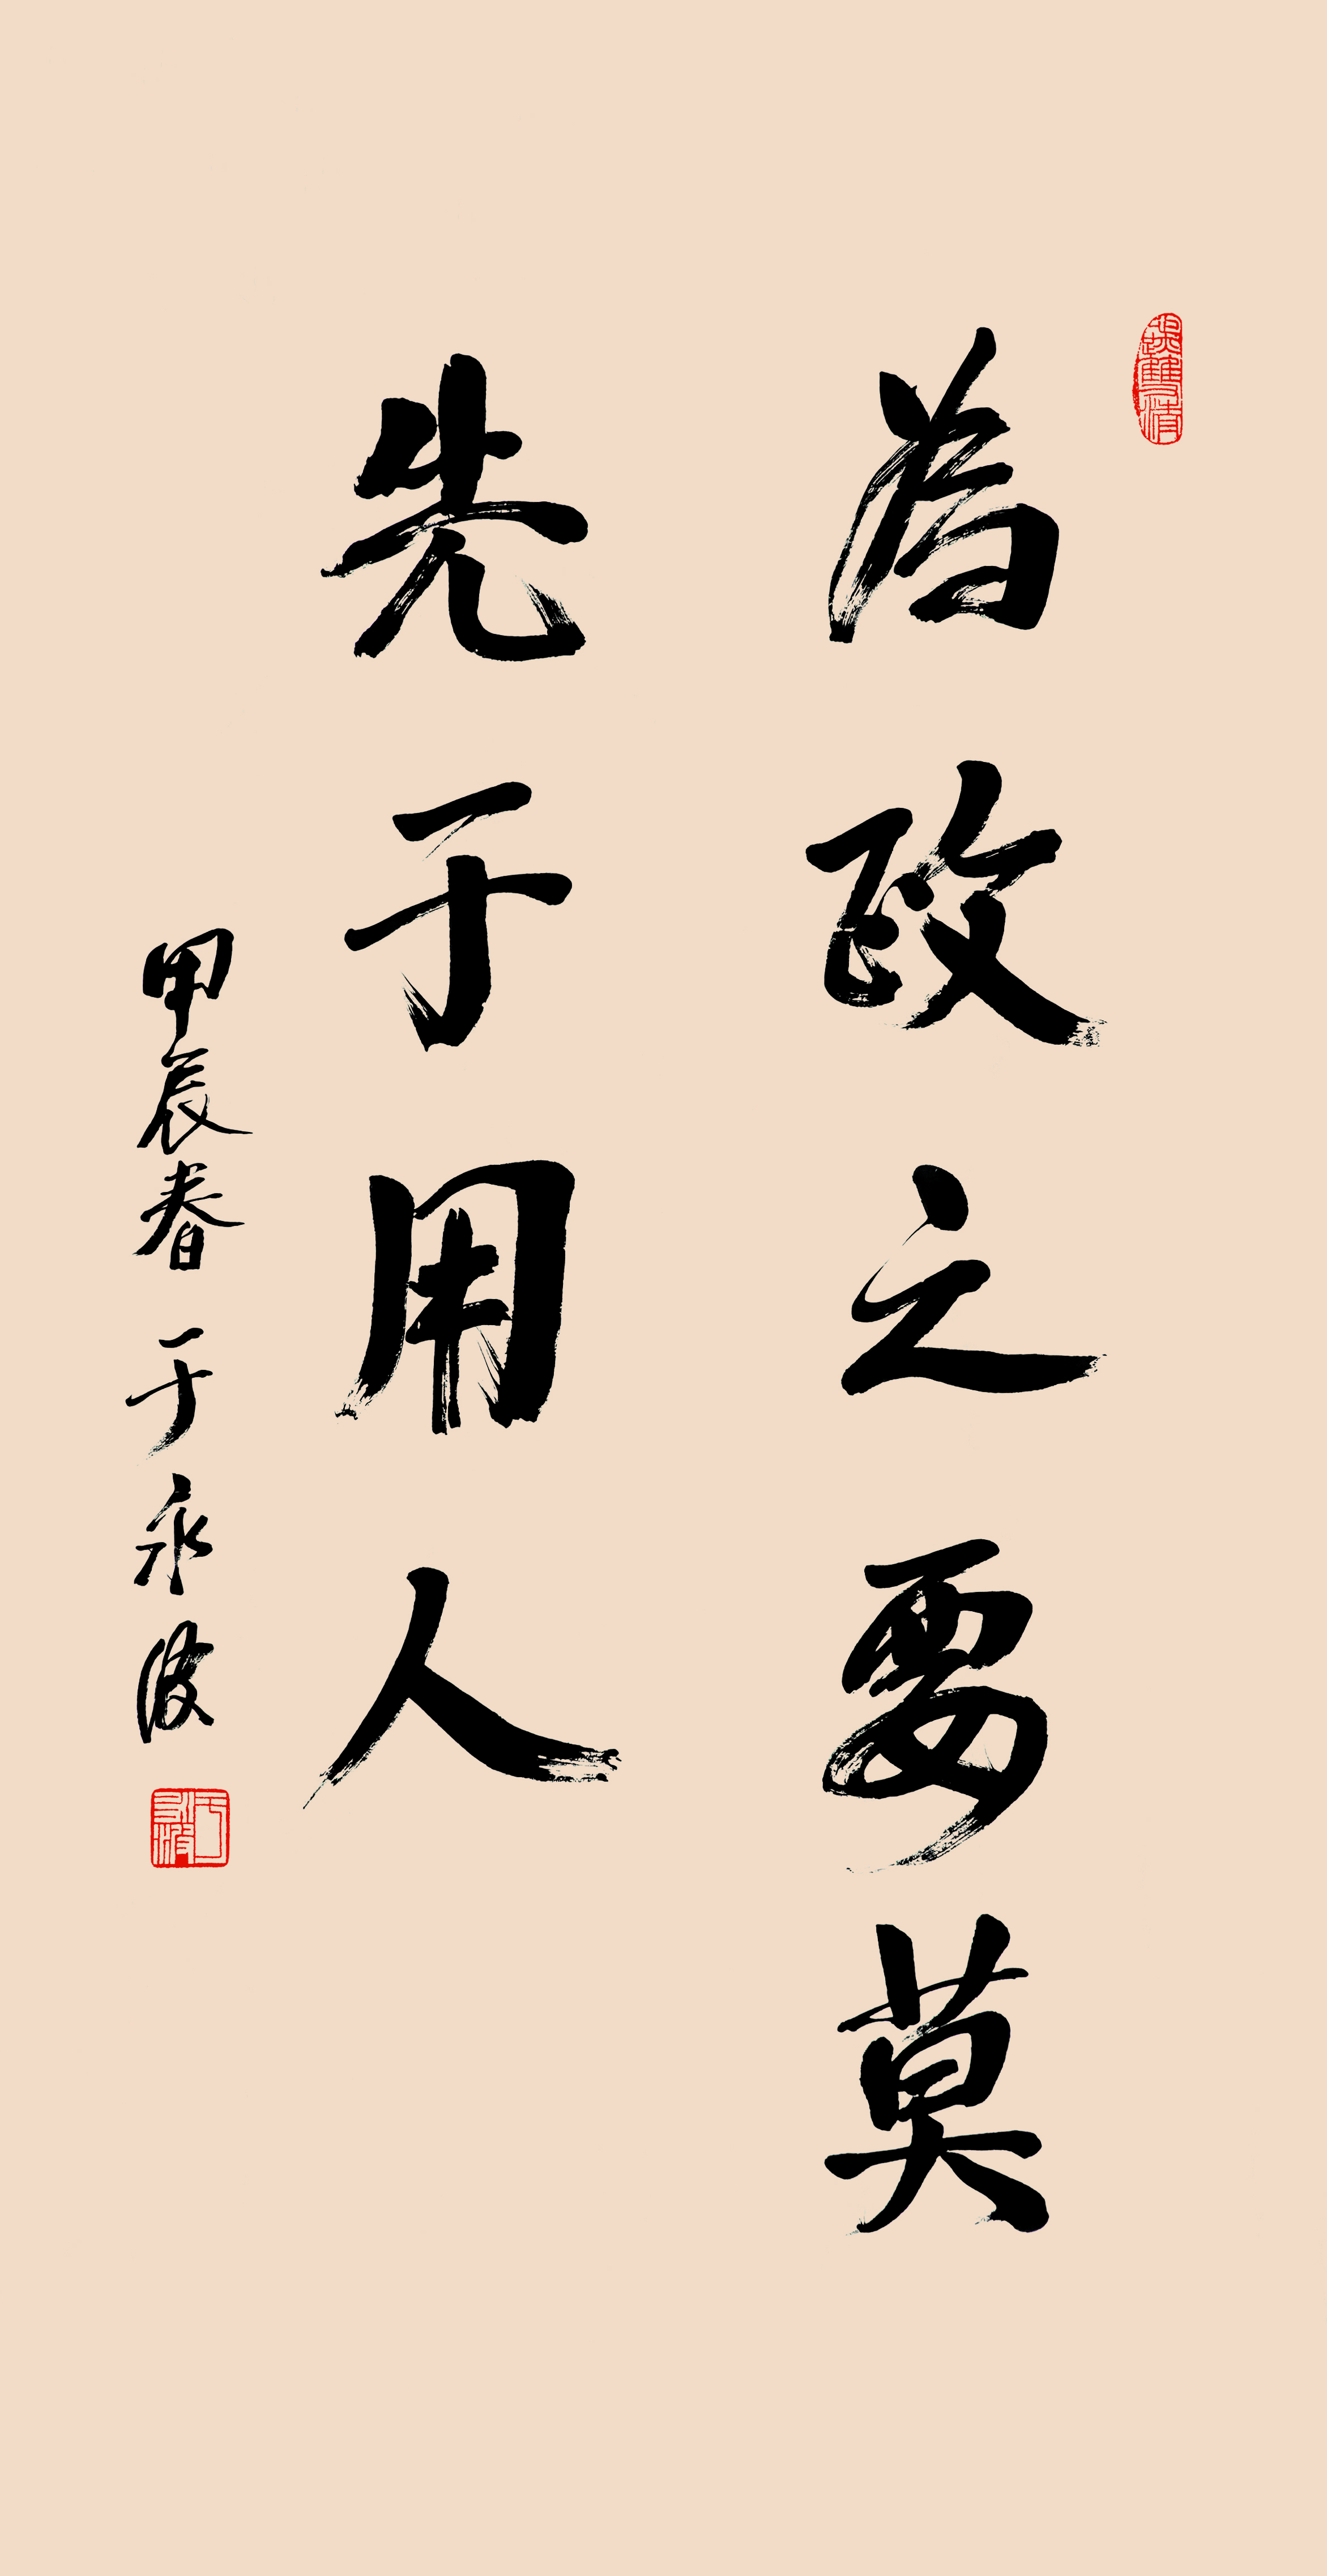 为政之要莫
先于用人
甲辰春 于永波